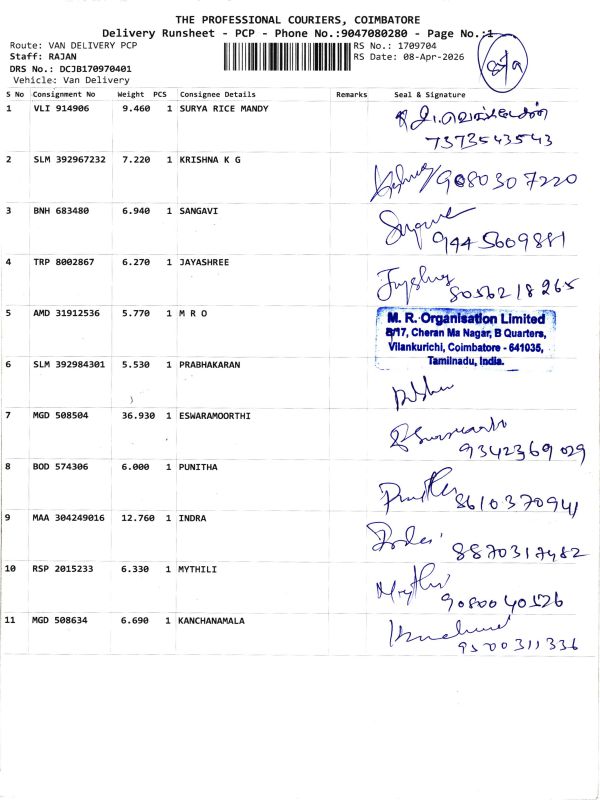 THE PROFESSIONAL COURIERS, COIMBATORE
Delivery Runsheet - PCP - Phone No.:9047080280 - Page No.:1
Route: VAN DELIVERY PCP
RS No.: 1709704
Staff: RAJAN
RS Date: 08-Apr-2026
DRS No.: DCJB170970401
Vehicle: Van Delivery
S No Consignment No Weight PCS Consignee Details Remarks Seal & Signature
1 VLI 914906 9.460 1 SURYA RICE MANDY
7373543543
2 SLM 392967232 7.220 1 KRISHNA K G
9080307220
3 BNH 683480 6.940 1 SANGAVI
9445609881
4 TRP 8002867 6.270 1 JAYASHREE
8056218265
5 AMD 31912536 5.770 1 M R O
M. R. Organisation Limited
8/17, Cheran Ma Nagar, B Quarters,
Vilankurichi, Coimbatore - 641035,
Tamilnadu, India.
6 SLM 392984301 5.530 1 PRABHAKARAN
7 MGD 508504 36.930 1 ESWARAMOORTHI
9342369029
8 BOD 574306 6.000 1 PUNITHA
8610370941
9 MAA 304249016 12.760 1 INDRA
8870317482
10 RSP 2015233 6.330 1 MYTHILI
9080040526
11 MGD 508634 6.690 1 KANCHANAMALA
9500311336